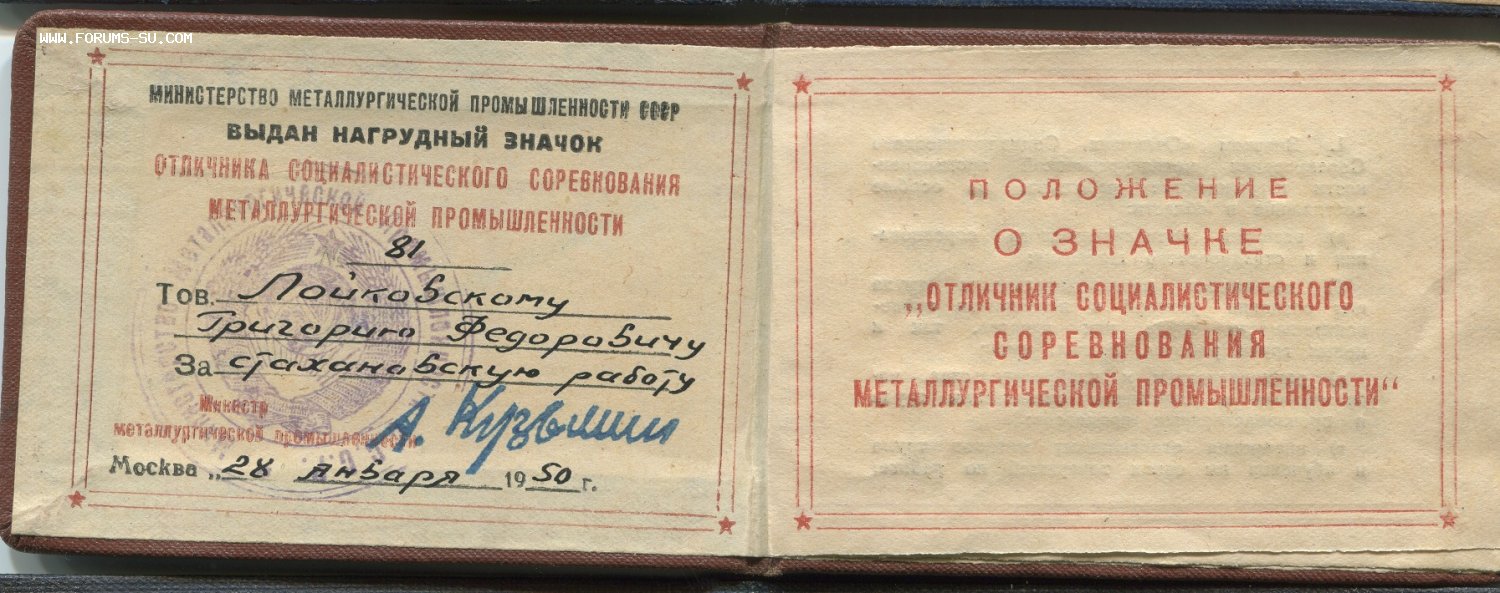 WWW.FORUMS-SU.COM
МИНИСТЕРСТВО МЕТАЛЛУРГИЧЕСКОЙ ПРОМЫШЛЕННОСТИ СССР
ВЫДАН НАГРУДНЫЙ ЗНАЧОК
ОТЛИЧНИКА СОЦИАЛИСТИЧЕСКОГО СОРЕВНОВАНИЯ
МЕТАЛЛУРГИЧЕСКОЙ ПРОМЫШЛЕННОСТИ
81
Тов. Лойковскому
Григорию Федоровичу
За стахановскую работу
Министр
металлургической промышленности
А. Кузьмин
Москва „28 января 1950 г.
ПОЛОЖЕНИЕ
О ЗНАЧКЕ
„ОТЛИЧНИК СОЦИАЛИСТИЧЕСКОГО
СОРЕВНОВАНИЯ
МЕТАЛЛУРГИЧЕСКОЙ ПРОМЫШЛЕННОСТИ“